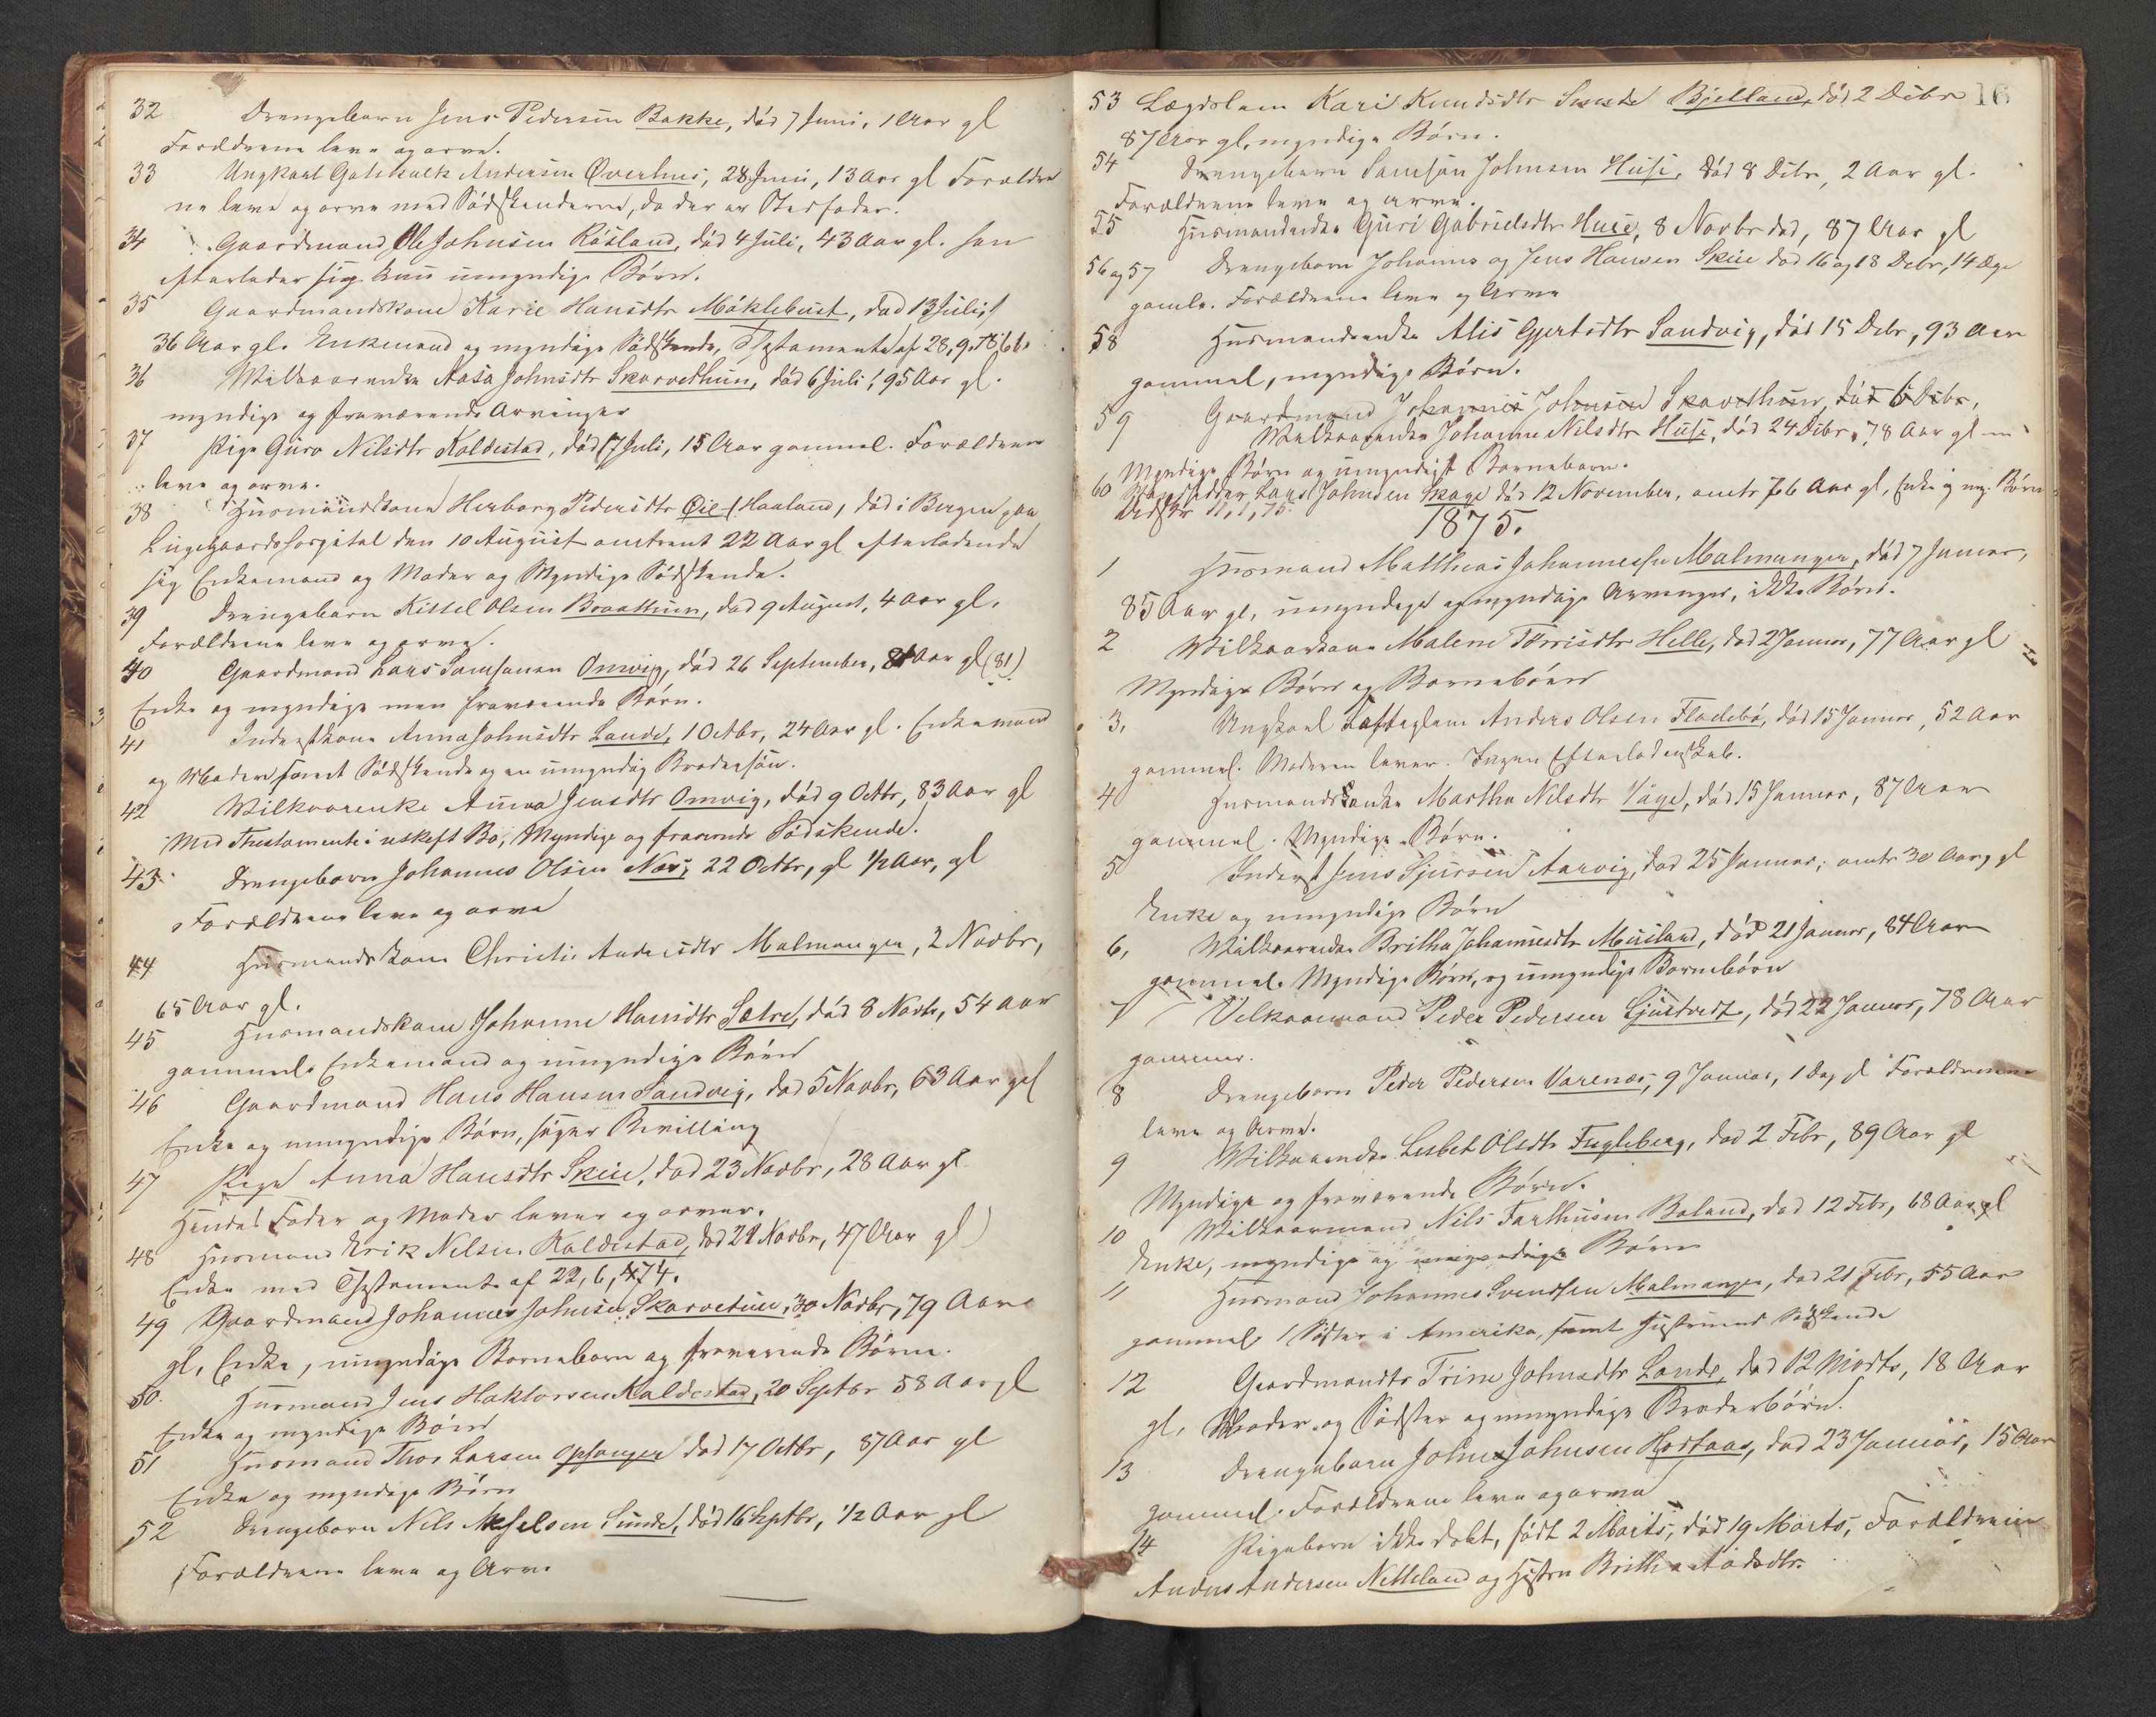 32 Drengebarn Jens Pedersen Bakke, død 7 Juni, 1 Aar gl
Forældrene leve og arve.
33 Ungkarl Gotskalk Andersen Øverhus, 28 Juni, 13 Aar gl Forældre
ne leve og arve med Sødskenderne, da der er Stedfader.
34 Gaardmand Ole Johnsen Røsland, død 4 Juli, 43 Aar gl. han
efterlader sig kun umyndige Børn.
35 Gaardmandskone Karie Hansdtr Møklebust, død 13 Juli,
36 Aar gl. Enkemand og myndige Sødskende, Testamente af 28,9,1866.
36 Vilkaarenke Aasa Johnsdtr Skarvethun, død 6 Juli, 95 Aar gl.
myndige og fraværende Arvinger
37 Pige Guro Nilsdtr Kaldestad, død 17 Juli, 15 Aar gammel. Forældrene
leve og arve.
38 Husmandskone Herborg Pedersdtr Øie (Haaland, død i Bergen paa
Lugegaardshospital den 10 August omtrent 22 Aar gl efterladende
sig Enkemand og Moder og Myndige Sødskende.
39 Drengebarn Kittel Olsen Braathun, død 9 August, 4 Aar gl.
Forældrene leve og arve.
40 Gaardmand Lars Samsonsen Omvig, død 26 September, 81 Aar gl (81)
Enke og myndige men fraværende Børn.
41 Inderstkone Anna Johnsdtr Lande, 1 Octbr, 24 Aar gl. Enkemand
og Moder samt Sødskende og en umyndig Brodersøn.
42 Vilkaarenke Anna Jensdtr Omvig, død 9 Octbr, 83 Aar gl
Med Thestamente i uskeft Bo, Myndige og fraværende Sødskende.
43. Drengebarn Johannes Olsen Næs, 22 Octbr, gl 1/2 Aar, gl
Forældrene leve og arve
44 Husmandskone Christi Andersdtr Malmangen, 2 Novbr,
65 Aar gl.
45 Husmandskone Johanne Hansdtr Sætre, død 8 Novbr, 54 Aar
gammel. Enkemand og umyndige Børn
46 Gaardmand Hans Hansen Sandvig, død 5 Novbr, 63 Aar gl
Enke og umyndige Børn, søger Bevilling
47 Pige Anna Hansdtr Skeie, død 23 Novbr, 28 Aar gl.
Hendes Fader og Moder lever og arver.
48 Husmand Erik Nelsen Kaldestad, død 21 Novbr, 47 Aar gl
Enke med Thestamente af 22,6,74.
49 Gaardmand Johannes Johnsen Skarvetun, 30 Novbr, 79 Aar
gl, Enke, umyndige Bornebørn og fraværende Børn.
50. Husmand Jens Haktorsen Kaldestad, 20 Septbr 58 Aar gl
Enke og myndige Børn
51 Husmand Thor Larsen Opsanger død 17 Octbr, 87 Aar gl
Enke og myndige Børn
52 Drengebarn Nils Akselsen Sunde, død 16 Septbr, 1/2 Aar gl
Forældrene leve og Arve
16
53 Lægdslem Kari Knudsdtr Bjelland, død 2 Debr
87 Aar gl, myndige Børn.
54 Drengebarn Samson Johnsen Huse, død 8 Debr, 2 Aar gl.
Forældrene leve og arve.
55 Husmandenke Guri Gabrielsdtr Huse, 8 Novbr død, 87 Aar gl
56 og 57 Drengebørn Johannes og Jens Hansen Skeie død 16 og 18 Debr, 14 Dage
gamle. Forældrene leve og Arve
58 Husmandsenke Alis Gjertsdtr Sandvig, død 15 Debr, 93 Aar
gammel, myndige Børn.
59 Gaardmand Johannis Johnsen Skavethun, død 6 Debr,
Vilkaarenke Johanne Nilsdtr Huse, død 24 Debr, 78 Aar gl
Myndige Børn og umyndigt Bornebarn.
60 Lars Johnsen Skage død 12 November, omtr 76 Aar gl, Enke og myn. Børn
11,1,75.
1875.
1 Husmand Matthias Johannessen Malmangen, død 7 Januar,
85 Aar gl, umyndige og myndige Arvinger, ikke Børn.
2 Vilkaarkone Malene Torrisdtr Helle, død 2 Januar, 77 Aar gl
Myndige Børn og Bornebørn
3. Ungkarl Anders Olsen Fladebø, død 15 Januar, 52 Aar
gammel. Moderen lever. Ingen Efterladenskab.
4 Husmandsenke Martha Nilsdtr Våge, død 15 Januar, 87 Aar
gammel. Myndige Børn.
5 Inderst Jens Sjursen Aarvig, død 25 Januar, omtr 30 Aar gl
Enke og umyndige Børn
6, Vilkaarenke Britha Johannesdtr Musland, død 21 Januar, 84 Aar
gammel. Myndige Børn, og umyndige Bornebørn
7 Vilkaarmand Peder Pedersen Ljustvedt, død 22 Januar, 78 Aar
gammel.
8 Drengebarn Peder Pedersen Varenæs, 9 Januar, 1 Dag gl Forældrene
leve og Arve.
9 Vilkaarenke Lisbet Olsdtr Fugleberg, død 2 Febr, 89 Aar gl
Myndige og fraværende Børn.
10 Vilkaarmand Nils Farthusen Baland, død 12 Febr, 68 Aar gl
Enke, myndige og umyndige Børn
11 Husmand Johannes Svendsen Malmangen, død 21 Febr, 55 Aar
gammel, 1 Søster i Amerika, samt Sødskende
12 Gaardmandtr Trine Johnsdtr Lande, død 12 Marts, 18 Aar
gl, Moder og Sødster og umyndige Broderbørn.
13 Drengebarn John Johnsen Hosfaas, død 23 Januar, 15 Aar
gammel. Forældrene leve og arve
14 Pigebarn ikke døbt, født 2 Marts, død 19 Marts, Forældrene
Anders Andersen Netteland og Hustru Britha Aadsdtr.